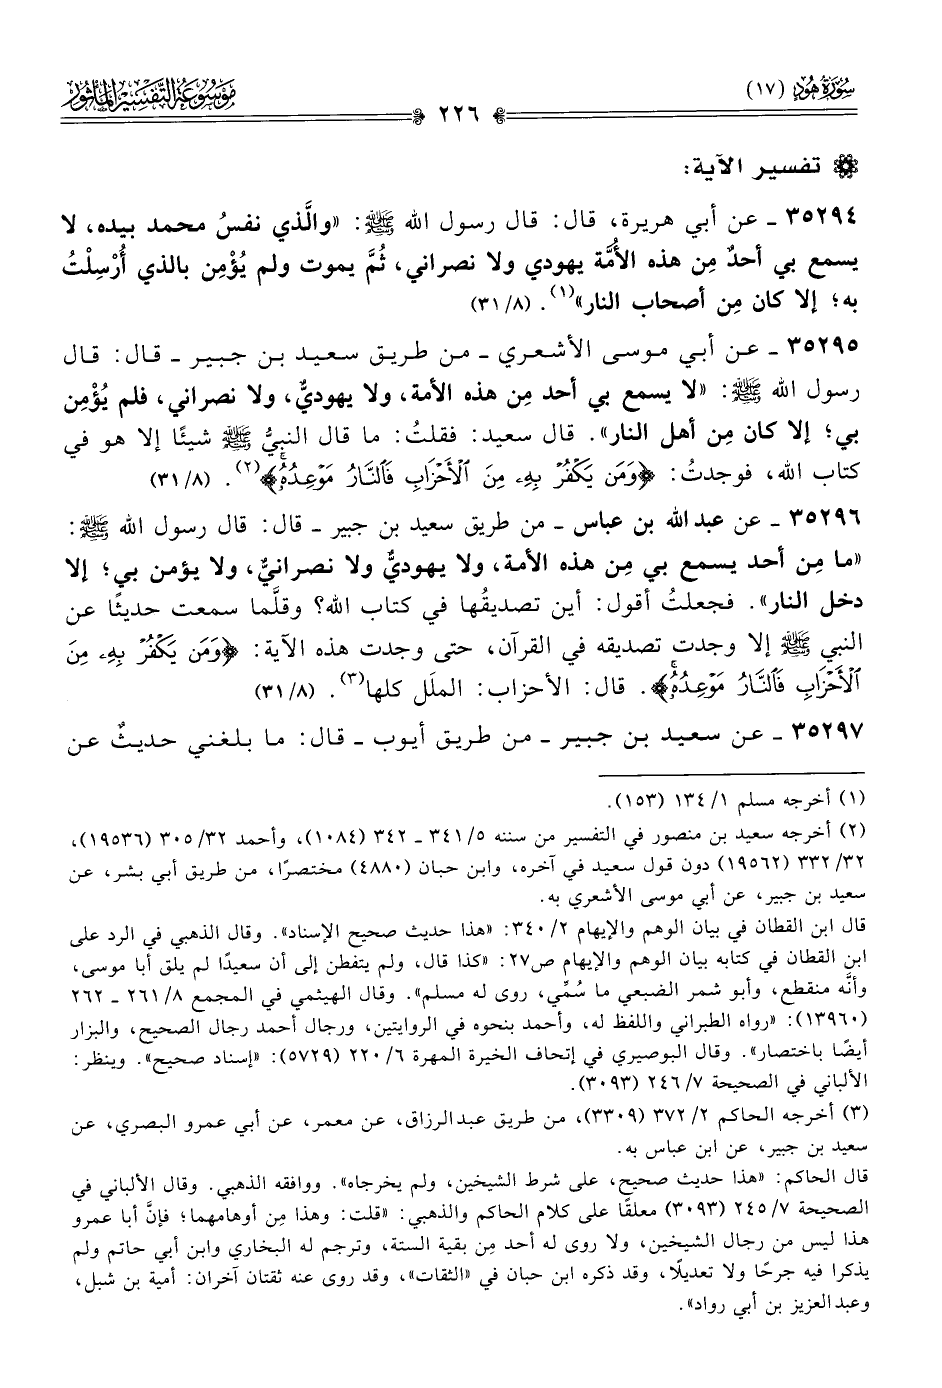 سُورَةُ هُودٍ (١٧)
٢٢٦
مَوْسُوعَةُ التَّفْسِيرِ المَأْثُور
تفسير الآية:
٣٥٢٩٤ ـ عن أبي هريرة، قال: قال رسول الله ﷺ: «والَّذي نفسُ محمد بيده، لا
يسمع بي أحدٌ مِن هذه الأُمَّة يهودي ولا نصراني، ثُمَّ يموت ولم يُؤْمِن بالذي أُرْسِلْتُ
به؛ إلا كان مِن أصحاب النار»(١). (٨/ ٣١)
٣٥٢٩٥ ـ عن أبي موسى الأشعري ـ من طريق سعيد بن جبير ـ قال: قال
رسول الله ﷺ: «لا يسمع بي أحد مِن هذه الأمة، ولا يهوديٌّ، ولا نصراني، فلم يُؤْمِن
بي؛ إلا كان مِن أهل النار». قال سعيد: فقلتُ: ما قال النبيُّ ﷺ شيئًا إلا هو في
كتاب الله، فوجدتُ: ﴿وَمَن يَكْفُرْ بِهِۦ مِنَ ٱلْأَحْزَابِ فَٱلنَّارُ مَوْعِدُهُۥۚ﴾(٢). (٨/ ٣١)
٣٥٢٩٦ ـ عن عبد الله بن عباس ـ من طريق سعيد بن جبير ـ قال: قال رسول الله ﷺ:
«ما مِن أحد يسمع بي مِن هذه الأمة، ولا يهوديٌّ ولا نصرانيٌّ، ولا يؤمن بي؛ إلا
دخل النار». فجعلتُ أقول: أين تصديقُها في كتاب الله؟ وقلَّما سمعت حديثًا عن
النبي ﷺ إلا وجدت تصديقه في القرآن، حتى وجدت هذه الآية: ﴿وَمَن يَكْفُرْ بِهِۦ مِنَ
ٱلْأَحْزَابِ فَٱلنَّارُ مَوْعِدُهُۥۚ﴾. قال: الأحزاب: الملَل كلها(٣). (٨/ ٣١)
٣٥٢٩٧ ـ عن سعيد بن جبير ـ من طريق أيوب ـ قال: ما بلغني حديثٌ عن
(١) أخرجه مسلم ١/ ١٣٤ (١٥٣).
(٢) أخرجه سعيد بن منصور في التفسير من سننه ٥/ ٣٤١ ـ ٣٤٢ (١٠٨٤)، وأحمد ٣٢/ ٣٠٥ (١٩٥٣٦)،
٣٢/ ٣٣٢ (١٩٥٦٢) دون قول سعيد في آخره، وابن حبان (٤٨٨٠) مختصرًا، من طريق أبي بشر، عن
سعيد بن جبير، عن أبي موسى الأشعري به.
قال ابن القطان في بيان الوهم والإيهام ٢/ ٣٤٠: «هذا حديث صحيح الإسناد». وقال الذهبي في الرد على
ابن القطان في كتابه بيان الوهم والإيهام ص٢٧: «كذا قال، ولم يتفطن إلى أن سعيدًا لم يلق أبا موسى،
وأنَّه منقطع، وأبو شمر الضبعي ما سُمِّي، روى له مسلم». وقال الهيثمي في المجمع ٨/ ٢٦١ ـ ٢٦٢
(١٣٩٦٠): «رواه الطبراني واللفظ له، وأحمد بنحوه في الروايتين، ورجال أحمد رجال الصحيح، والبزار
أيضًا باختصار». وقال البوصيري في إتحاف الخيرة المهرة ٦/ ٢٢٠ (٥٧٢٩): «إسناد صحيح». وينظر:
الألباني في الصحيحة ٧/ ٢٤٦ (٣٠٩٣).
(٣) أخرجه الحاكم ٢/ ٣٧٢ (٣٣٠٩)، من طريق عبدالرزاق، عن معمر، عن أبي عمرو البصري، عن
سعيد بن جبير، عن ابن عباس به.
قال الحاكم: «هذا حديث صحيح، على شرط الشيخين، ولم يخرجاه». ووافقه الذهبي. وقال الألباني في
الصحيحة ٧/ ٢٤٥ (٣٠٩٣) معلقًا على كلام الحاكم والذهبي: «قلت: وهذا مِن أوهامهما؛ فإنَّ أبا عمرو
هذا ليس من رجال الشيخين، ولا روى له أحد مِن بقية الستة، وترجم له البخاري وابن أبي حاتم ولم
يذكرا فيه جرحًا ولا تعديلًا، وقد ذكره ابن حبان في «الثقات»، وقد روى عنه ثقتان آخران: أمية بن شبل،
وعبد العزيز بن أبي رواد».